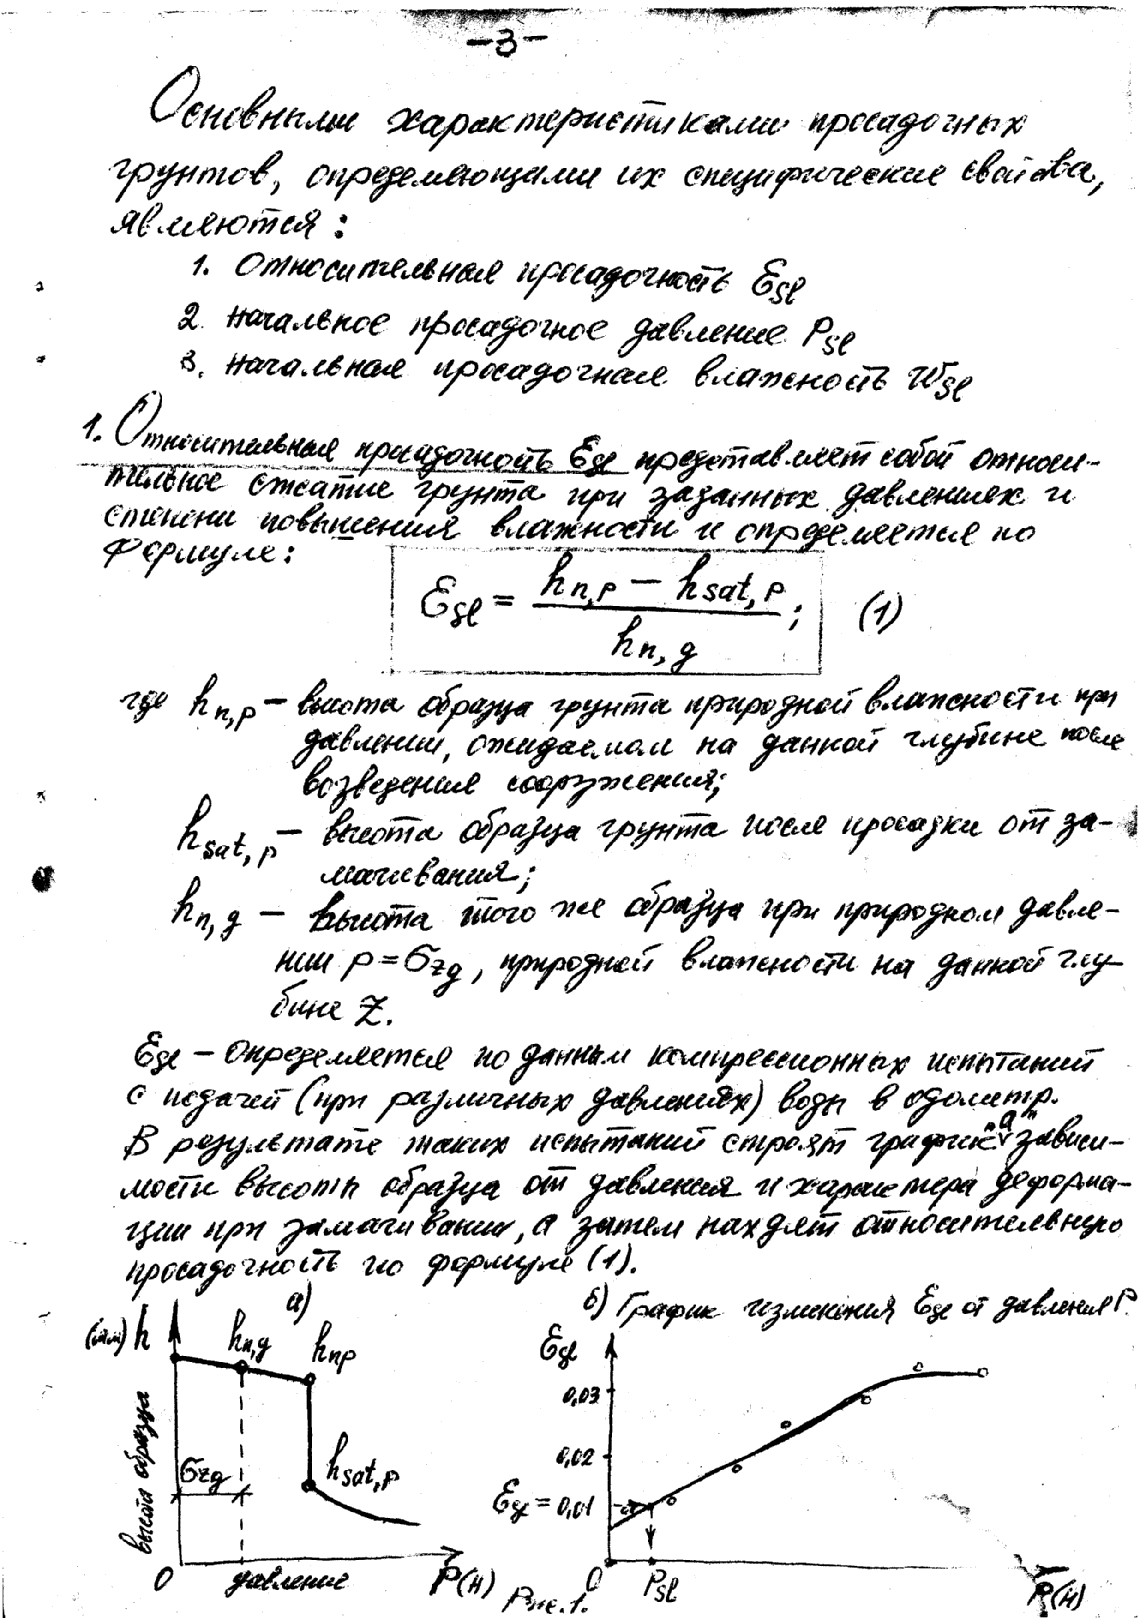 -3-
Основными характеристиками просадочных
грунтов, определяющими их специфические свойства,
являются:
1. Относительная просадочность εsl
2. начальное просадочное давление Psl
3. начальная просадочная влажность Wsl
1. Относительная просадочность εsl представляет собой относи-
тельное сжатие грунта при заданных давлениях и
степени повышения влажности и определяется по
формуле:
εsl = (hn,p − hsat,p) / hn,g ; (1)
где hn,p – высота образца грунта природной влажности при
давлении, ожидаемом на данной глубине после
возведения сооружения;
hsat,p – высота образца грунта после просадки от за-
мачивания;
hn,g – высота того же образца при природном давле-
нии p=σzg, природной влажности на данной глу-
бине Z.
εsl – определяется по данным компрессионных испытаний
с подачей (при различных давлениях) воды в одометр.
В результате таких испытаний строят график "а" зависи-
мости высоты образца от давления и характера деформа-
ции при замачивании, а затем находят относительную
просадочность по формуле (1).
а)
б) График изменения εsl от давления P.
(мм) h
hn,g
hnp
σzg
hsat,p
высота образца
0
давление
P(н)
εsl
0,03
0,02
εsl = 0,01
0
Psl
P(н)
Рис.1.